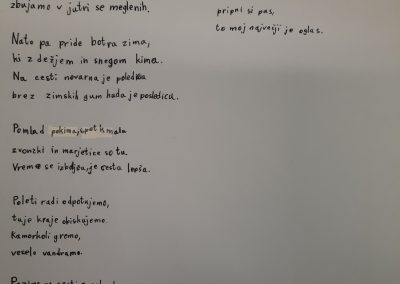 zbujamo v jutri se meglenih.
Nato pa pride botra zima,
ki z dežjem in snegom kima.
Na cesti nevarna je poledica
brez zimskih gum huda je posledica.
Pomlad
zvončki in marjetice so tu.
Vreme se izboljša, je cesta lepša.
Poleti radi odpotujemo,
tuje kraje obiskujemo.
Kamorkoli gremo,
veselo vandramo.
pripni si pas,
to moj največji je oglas.